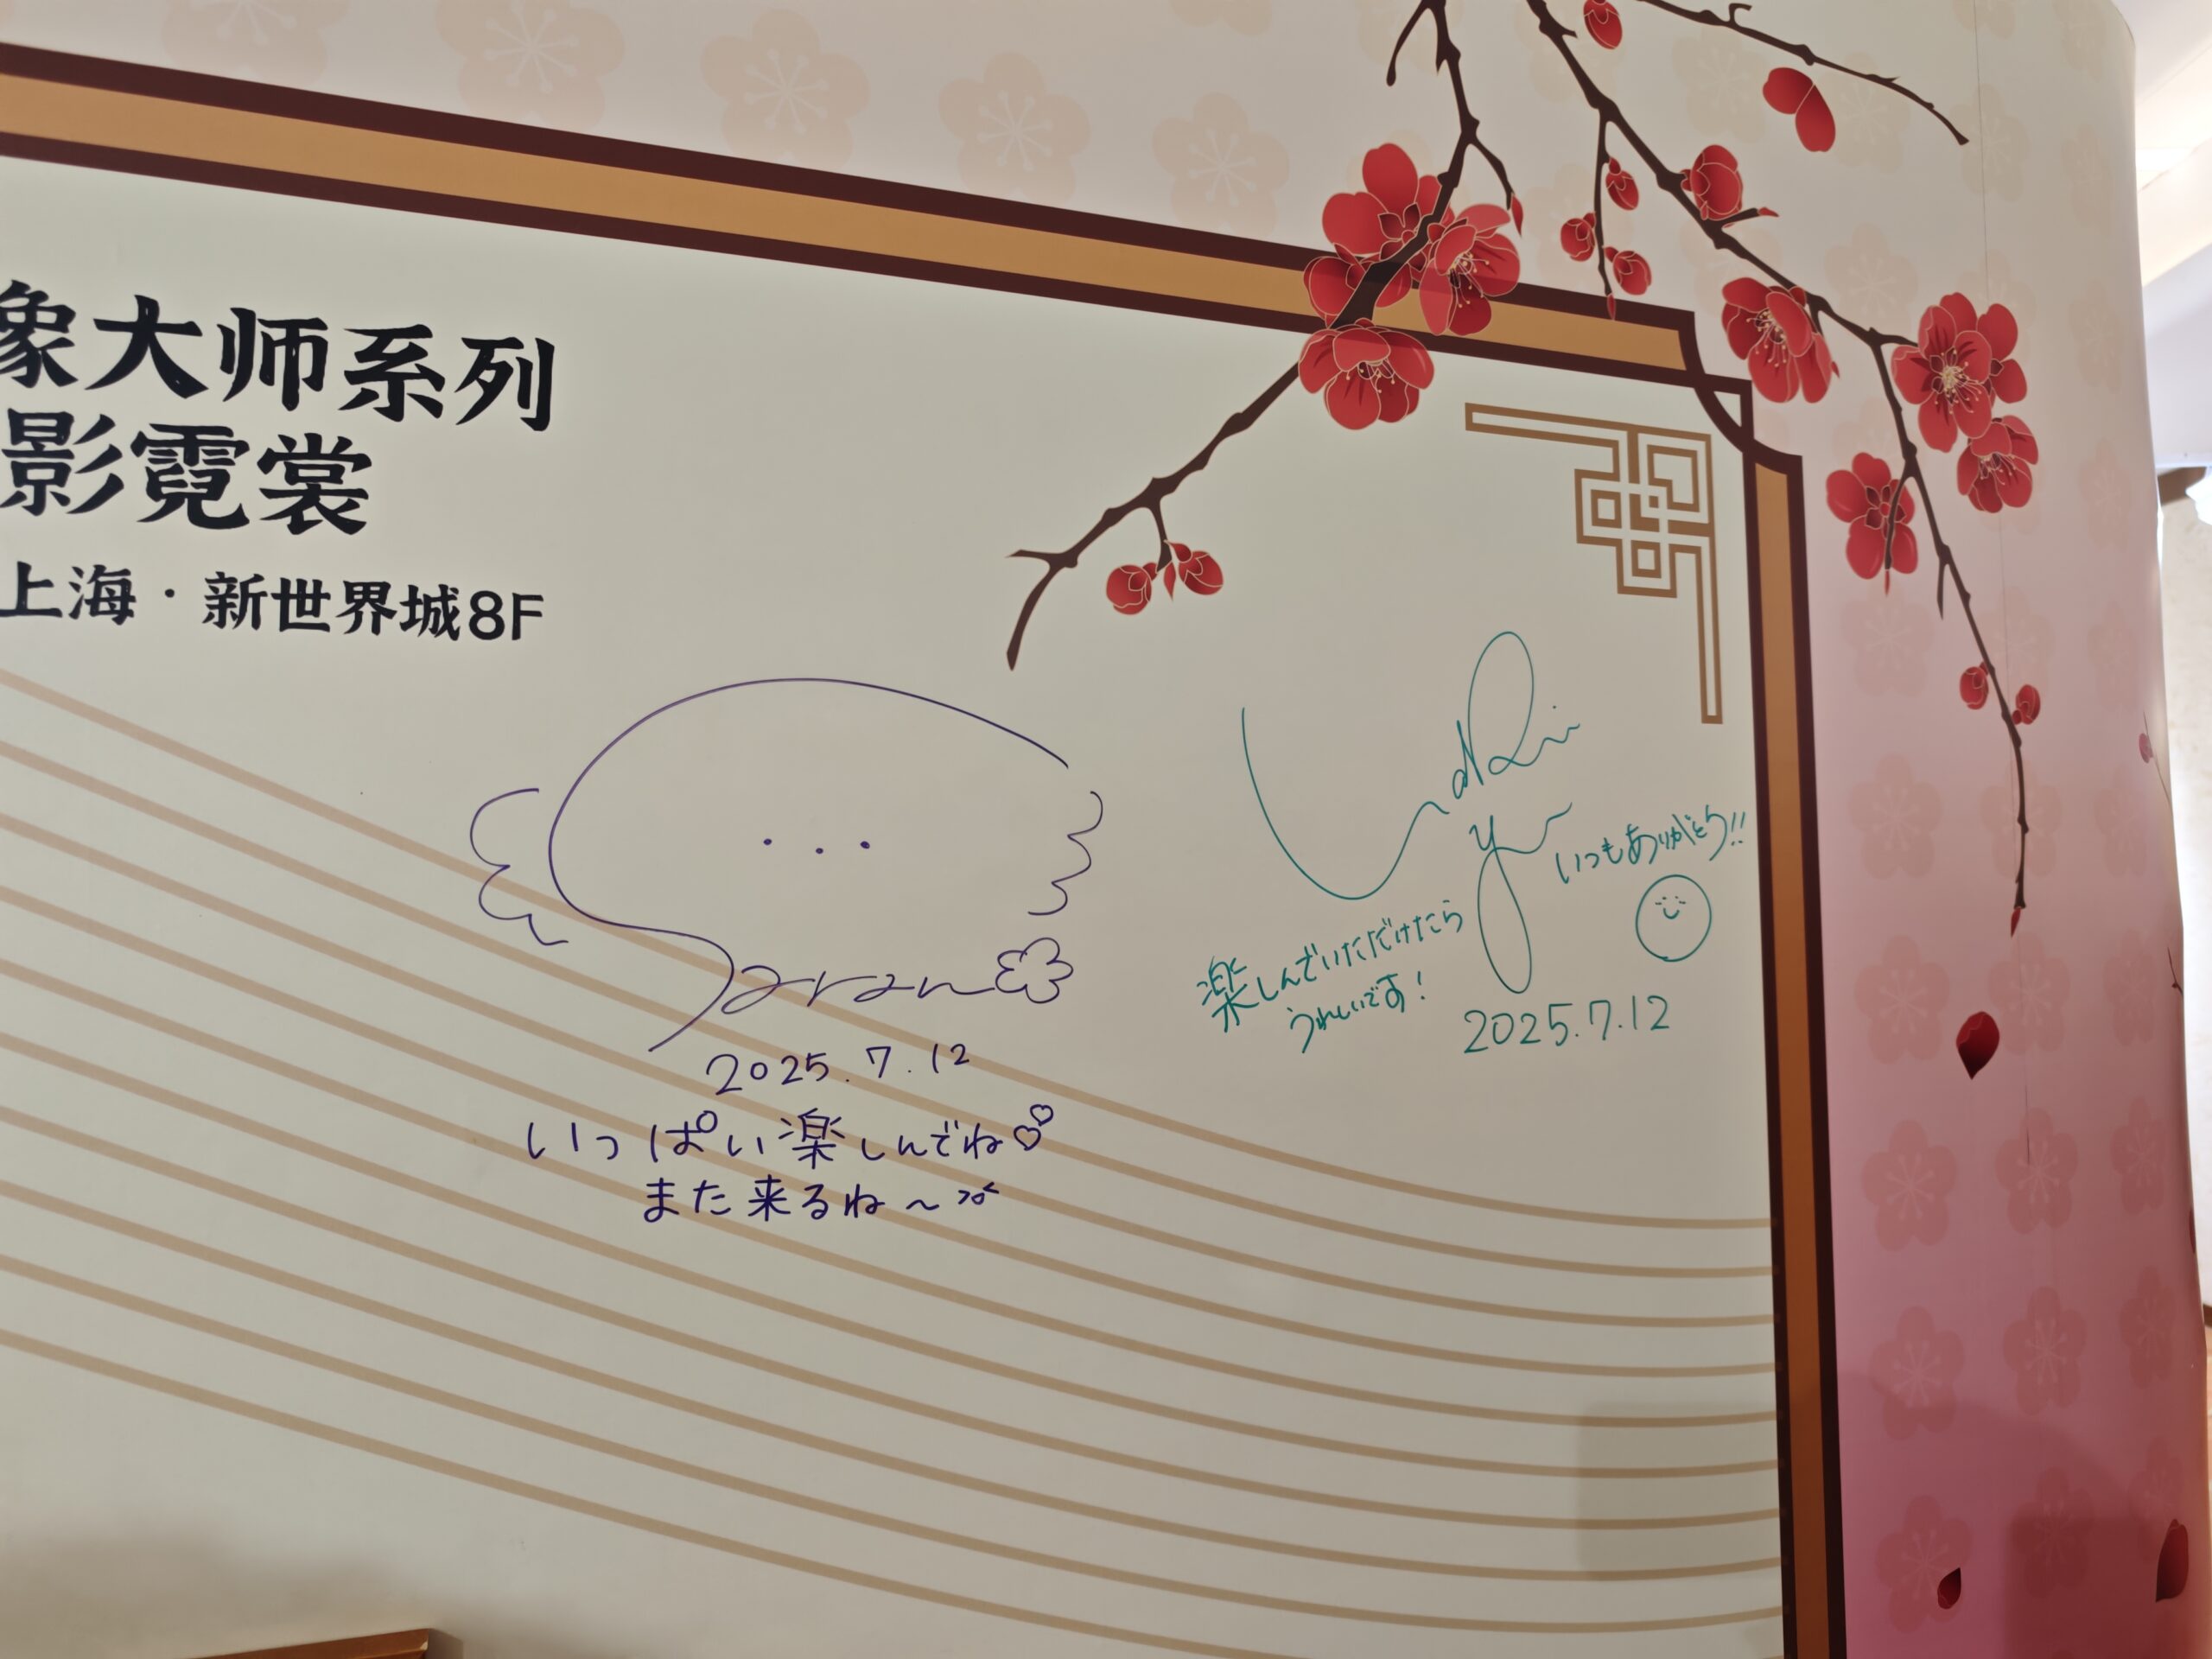 象大师系列
影霓裳
上海·新世界城8F
...
aran
2025.7.12
いっぱい楽しんでね♡♡
また来るね〜
いつもありがとう!!
楽しんでいただけたら
うれしいです!
2025.7.12